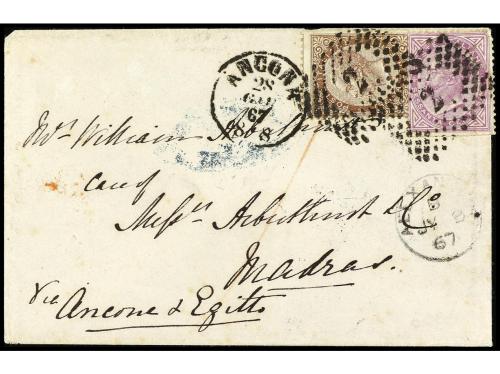 ANCONA
28
67
8 S
2
2
William
care of
Messrs Arbuthnot & Co
Madras.
67
via
Ancona & Egitto